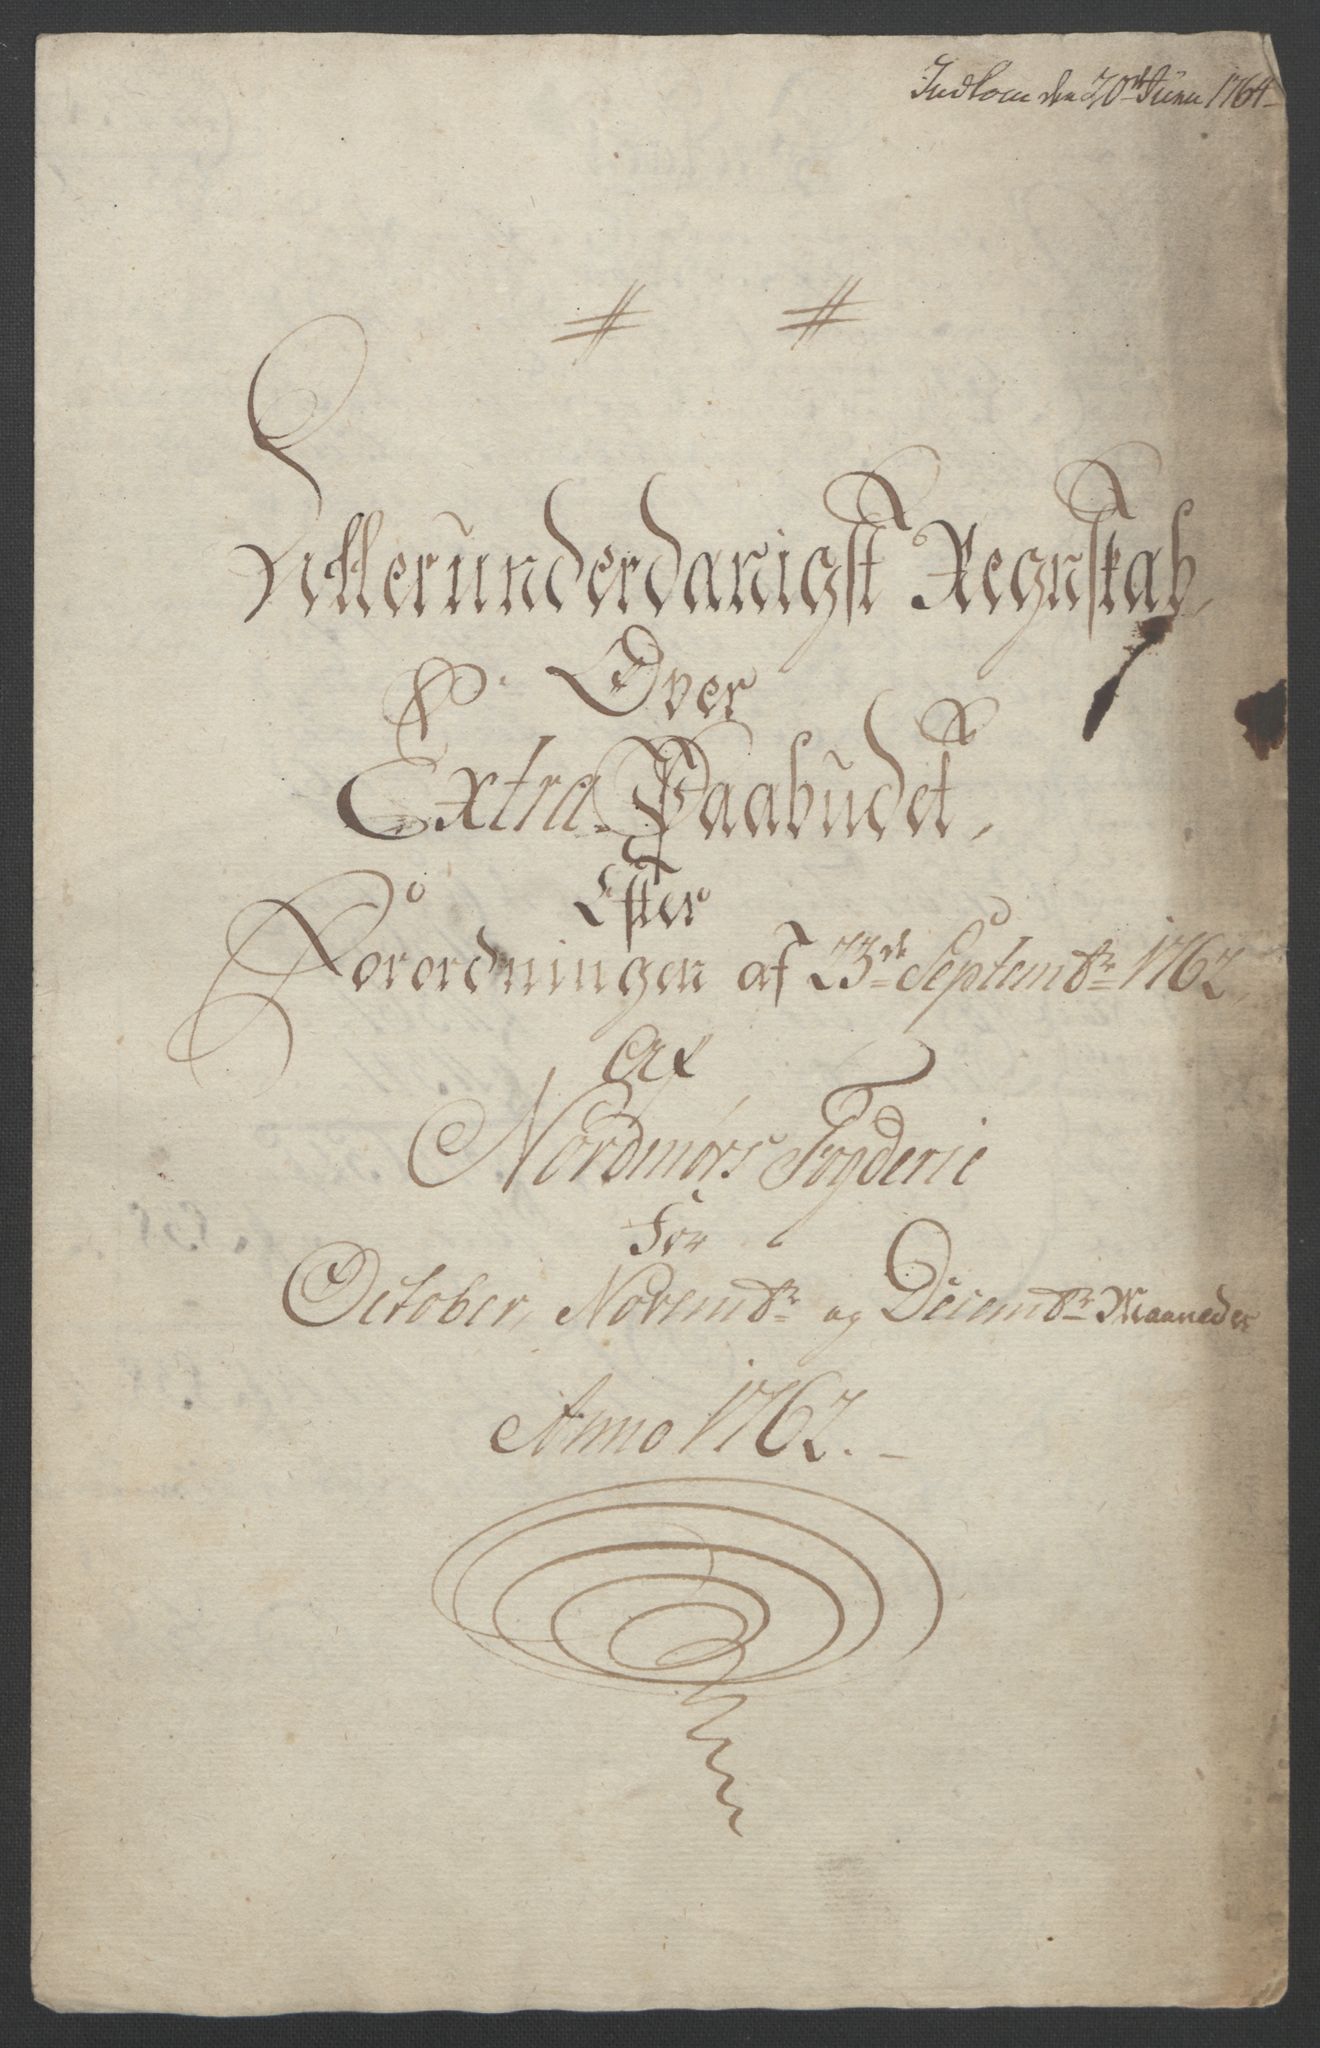 Indkom den 20de Junii 1764
Allerunderdanigst Regnskab,
Over
Extra-Paabudet,
Efter
Forordningen af 23de Septembr 1762,
Af
Nordmørs Fogderie
For
October, Novembr og Decembr Maaneder
Anno 1762.